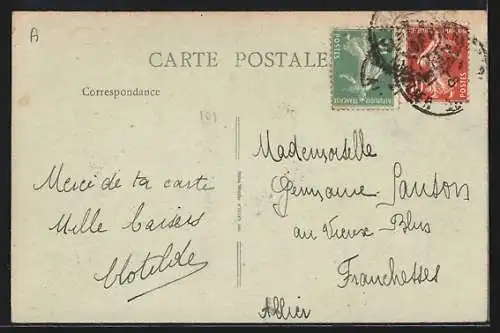 A
CARTE POSTALE
Correspondance
101
POSTES
REPUBLIQUE FRANÇAISE
POSTES
Merci de ta carte
Mille baisers
Clotilde
Mademoiselle
Germaine Lauton
au Vieux Blus
Franchesses
Allier